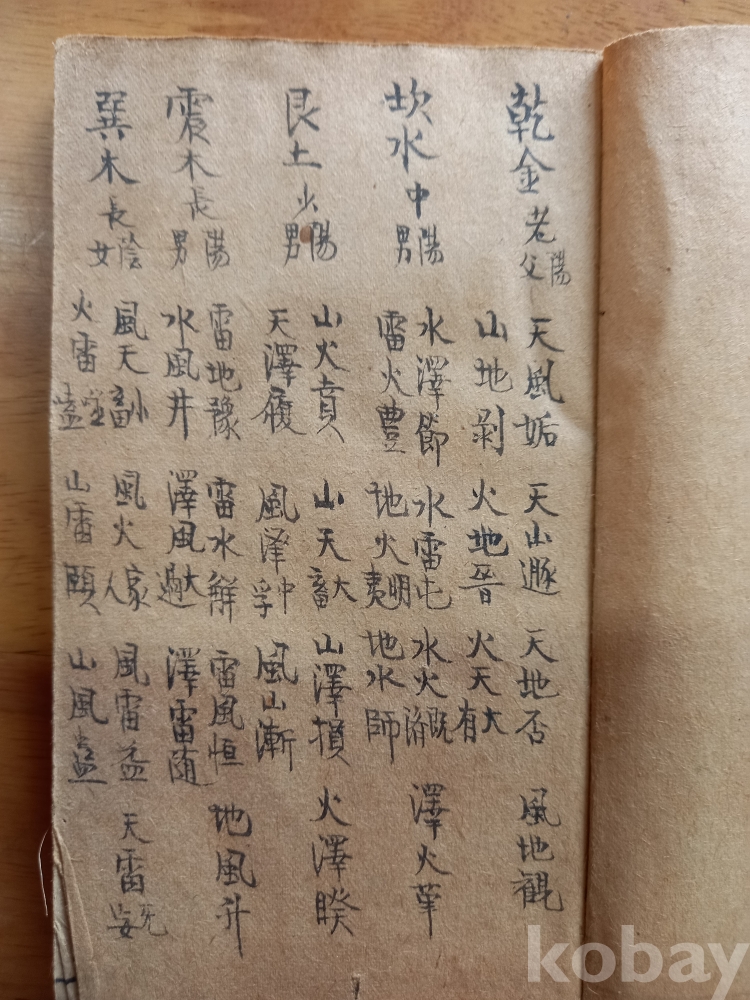 乾金老陽父 天風姤 天山遯 天地否 風地觀
山地剥 火地晉 火天大有
坎水中陽男 水澤節 水雷屯 水火既濟 澤火革
雷火豊 地火明夷 地水師
艮土少陽男 山火賁 山天大畜 山澤損 火澤睽
天澤履 風澤中孚 風山漸
震木長陽男 雷地豫 雷水解 雷風恒 地風升
水風井 澤風大過 澤雷随
巽木長陰女 風天小畜 風火家人 風雷益 天雷无妄
火雷噬嗑 山雷頤 山風蠱
kobay